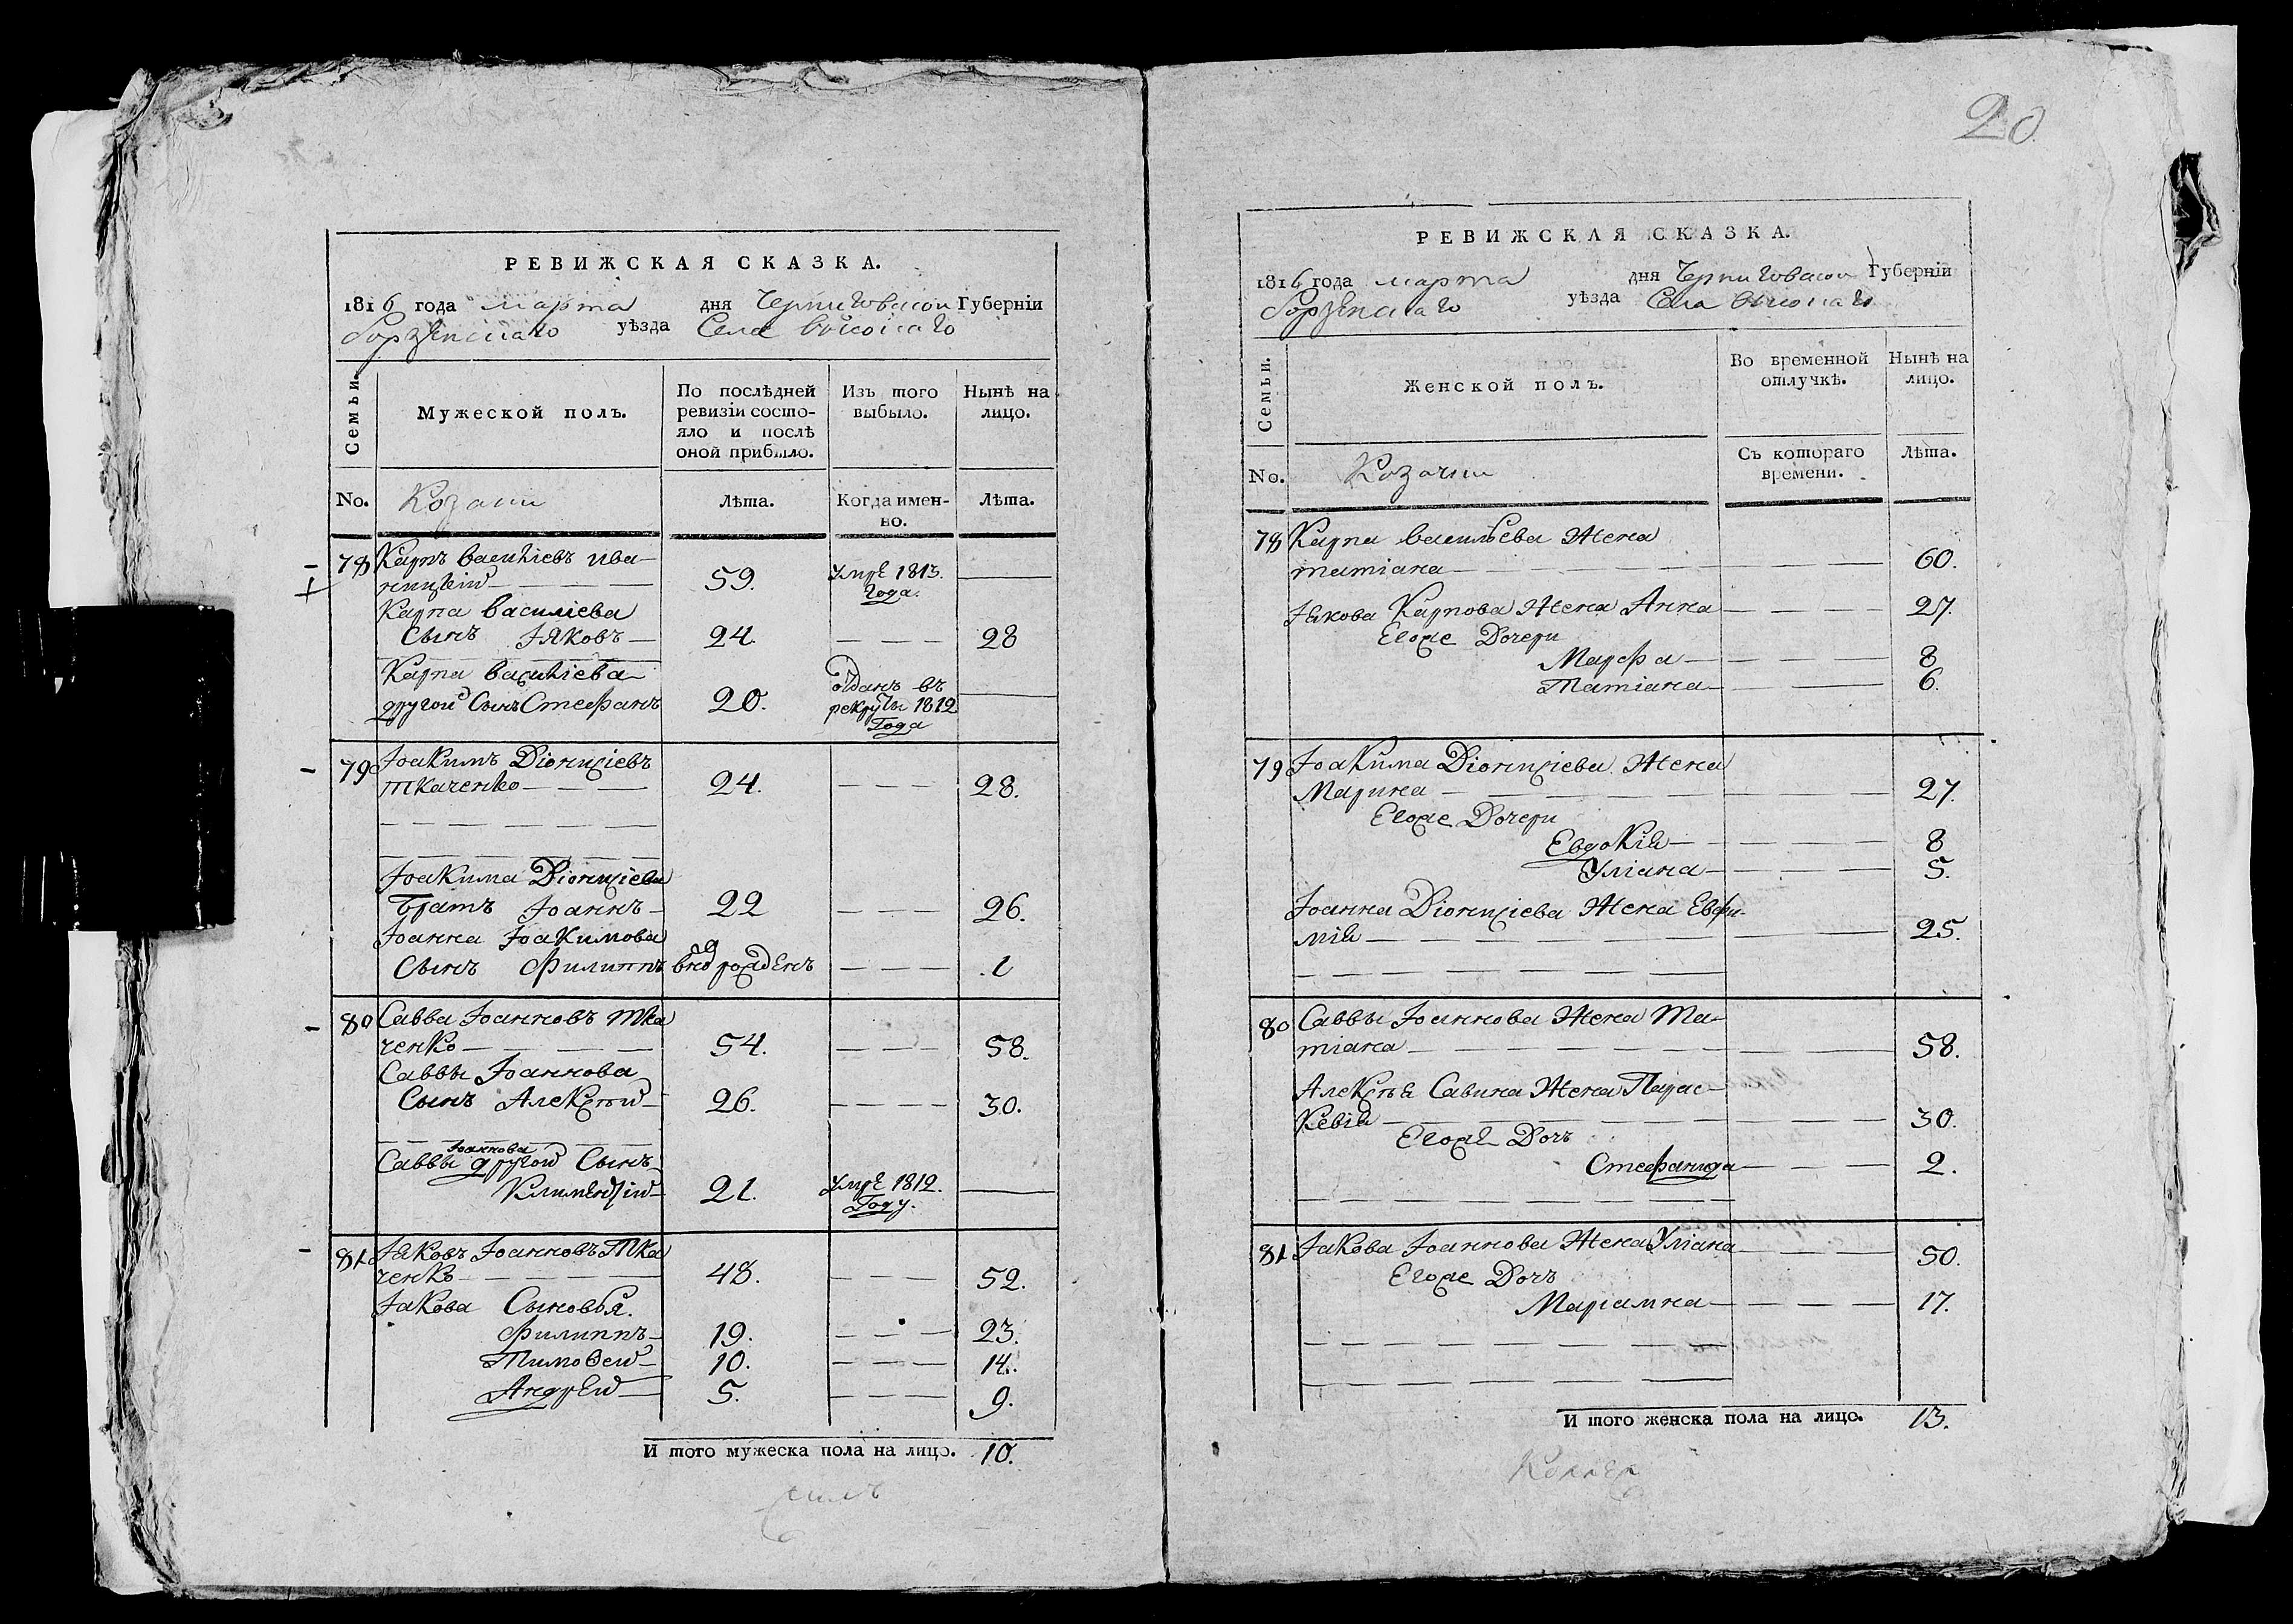 РЕВИЖСКАЯ СКАЗКА.
1816 года марта дня Черниговской Губерніи
Борзенскаго уѣзда Села
Семьи.
Мужеской полъ.
По послѣдней ревизіи состо-
яло и послѣ
оной прибыло.
Изъ того
выбыло.
Нынѣ на
лицо.
No.
Козаки
Лѣта.
Когда имен-
но.
Лѣта.
78 Карпъ василіевъ ива-
59. умре 1813.
года.
Карпа василіева
сынъ Іяковъ 24. 28
Карпа василіева
другой Сынъ Стефанъ 20. отданъ въ
рекруты 1812
Года
79 Іоакимъ Діонисіевъ
ткаченко 24. 28.
Іоакима Діонисіева
братъ Іоаннъ 22 26.
Іоанна Іоакимова
Сынъ Филиппъ рожденъ 1
80 Савва Іоанновъ Тка
ченко 54. 58.
Саввы Іоаннова
Сынъ Алексѣй 26. 30.
Іоаннова
Саввы другой Сынъ
Климентій 21. умре 1812.
Году.
81 Іяковъ Іоанновъ Тка
ченко 48. 52.
Іакова Сыновья.
Филиппъ 19. 23.
Тимоѳей 10. 14.
Андрей 5. 9.
И того мужеска пола на лицо. 10.
20.
РЕВИЖСКАЯ СКАЗКА.
1816 года марта дня Черниговской Губерніи
Борзенскаго уѣзда Села
Семьи.
Женской полъ.
Во временной
отлучкѣ.
Нынѣ на
лицо.
No.
Козачки
Съ котораго
времени.
Лѣта.
78 Карпа василъева Жена
татіана 60.
Іякова Карпова Жена Анна 27.
Егоже Дочери
Марфа 8
Татіана 6.
79 Іоакима Діонисіева Жена
Марина 27.
Егоже Дочери
Евдокія 8
Уліана 5.
Іоанна Діонисіева Жена Евфи-
мія 25.
80 Саввы Іоаннова Жена Та-
тіана 58.
Алексѣя Савина Жена Парас-
кевія 30.
Егоже Дочъ
Стефанида 2.
81 Іакова Іоаннова Жена Уліана 50.
Егоже Дочъ
Маріамна 17.
И того женска пола на лицо. 13.